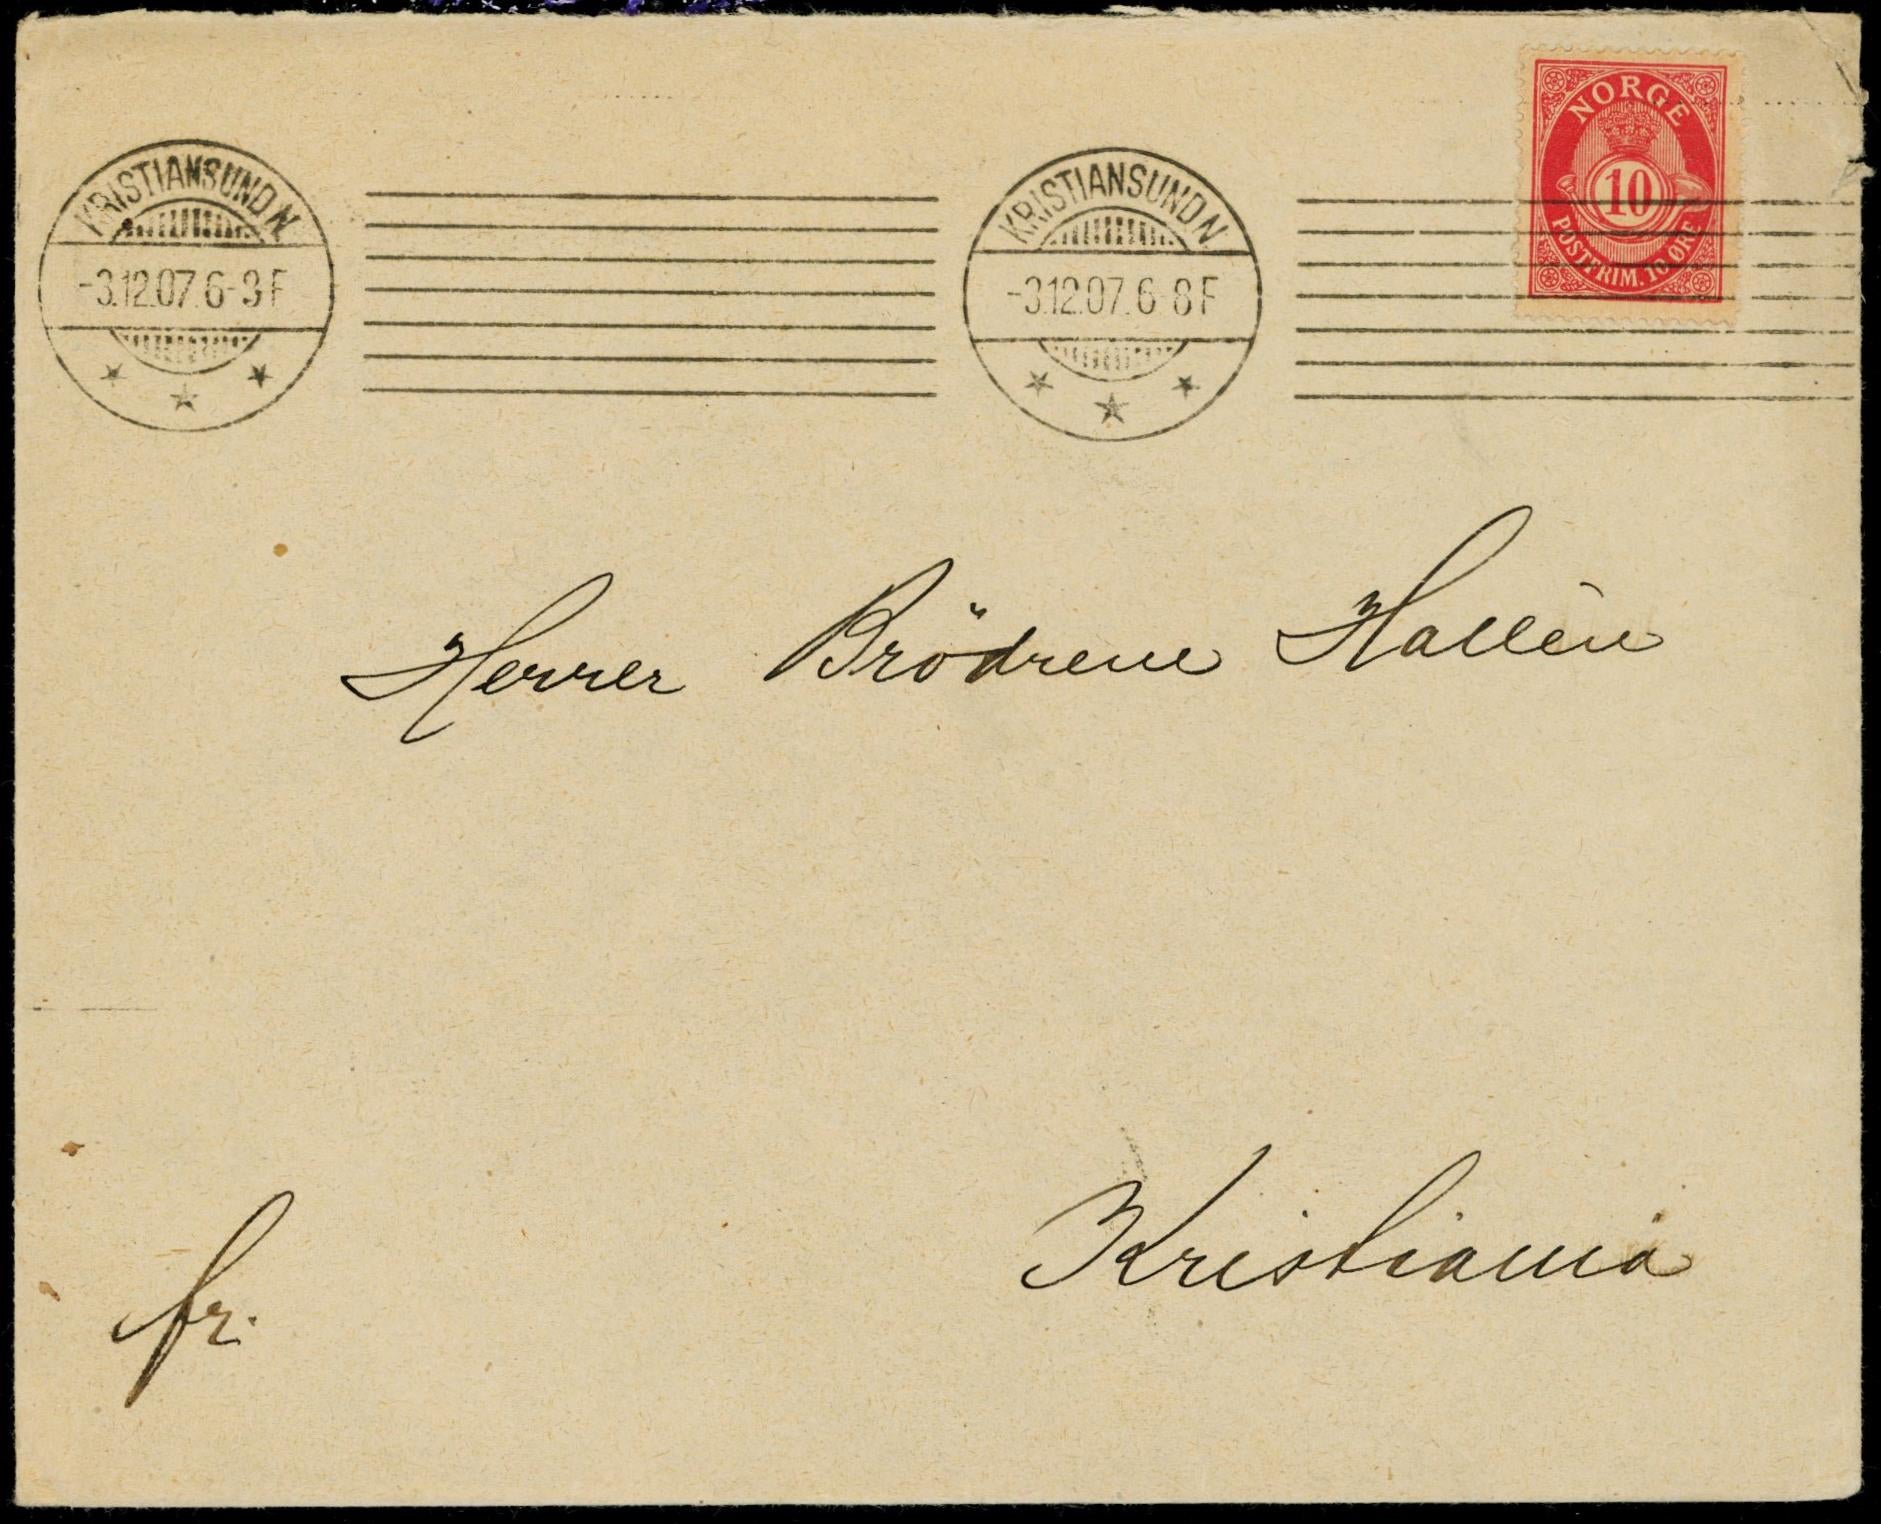 NORGE
10
POSTFRIM. 10 ØRE
KRISTIANSUND N
-3.12.07.6-8F
KRISTIANSUND N
-3.12.07.6-8F
Herrer Brödrene Hallèn
Kristiania
fr.